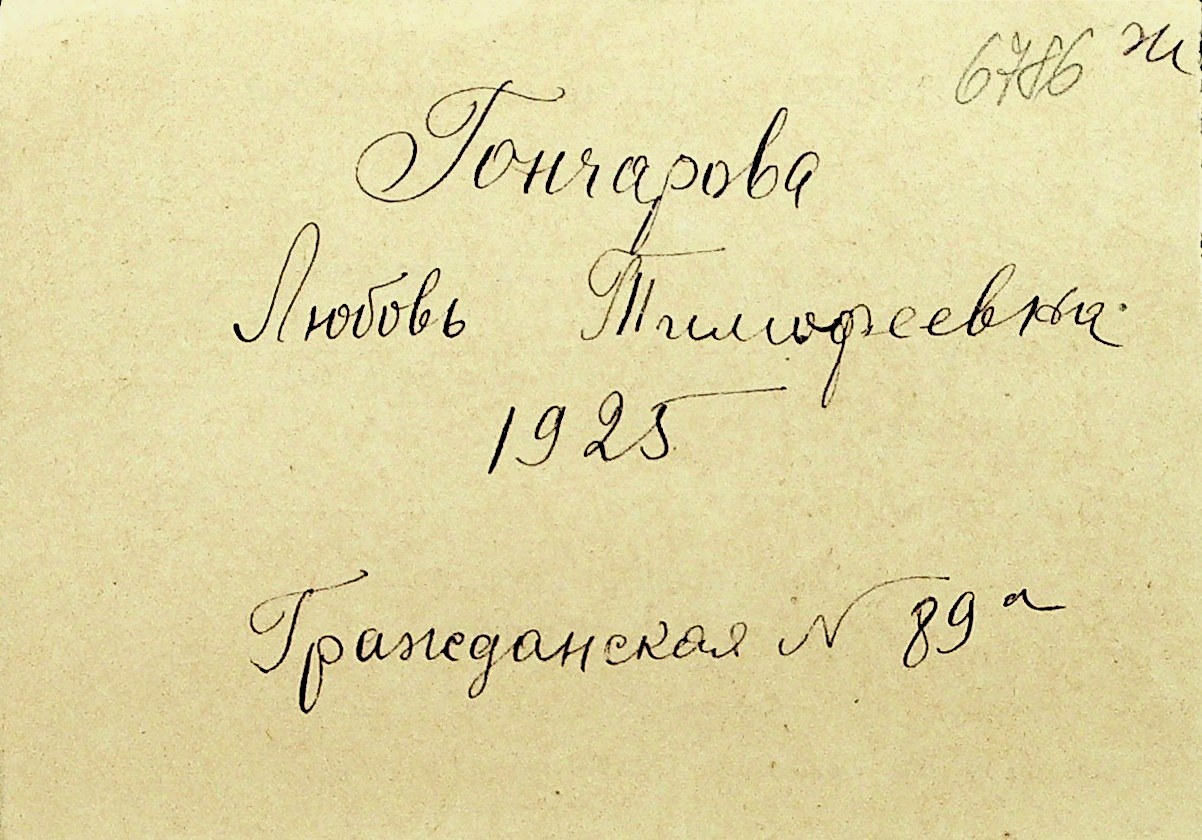 6786 ж
Гончарова
Любовь Тимофеевна.
1925
Гражданская N 89 а